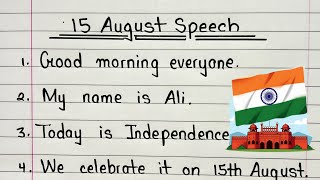 15 August Speech
1. Good morning everyone.
2. My name is Ali.
3. Today is Independence
4. We celebrate it on 15th August.